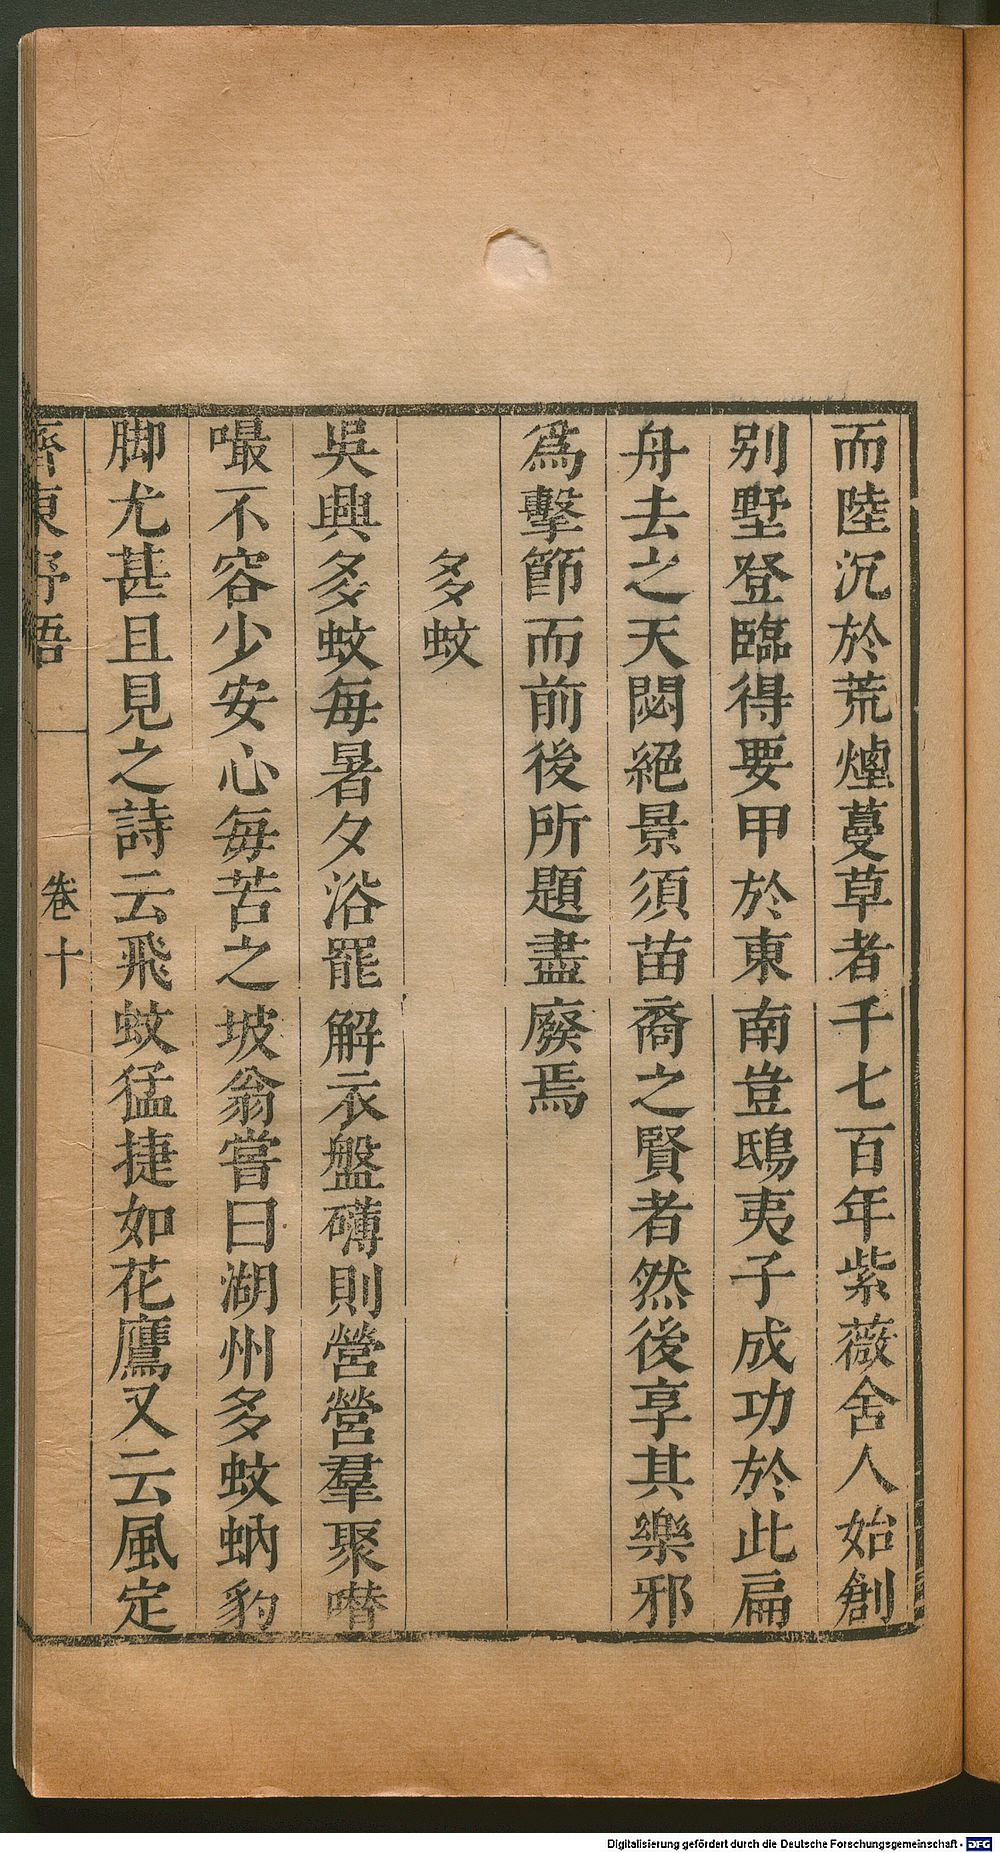 而陸沉於荒煙蔓草者千七百年紫薇舍人始創
别墅登臨得要甲於東南豈鴟夷子成功於此扁
舟去之天閟絕景須苗裔之賢者然後享其樂邪
爲擊節而前後所題盡廢焉
多蚊
吳興多蚊每暑夕浴罷解衣盤礴則營營羣聚噆
嘬不容少安心每苦之坡翁嘗曰湖州多蚊蚋豹
脚尤甚且見之詩云飛蚊猛捷如花鷹又云風定
齊東野語
卷十
Digitalisierung gefördert durch die Deutsche Forschungsgemeinschaft - DFG